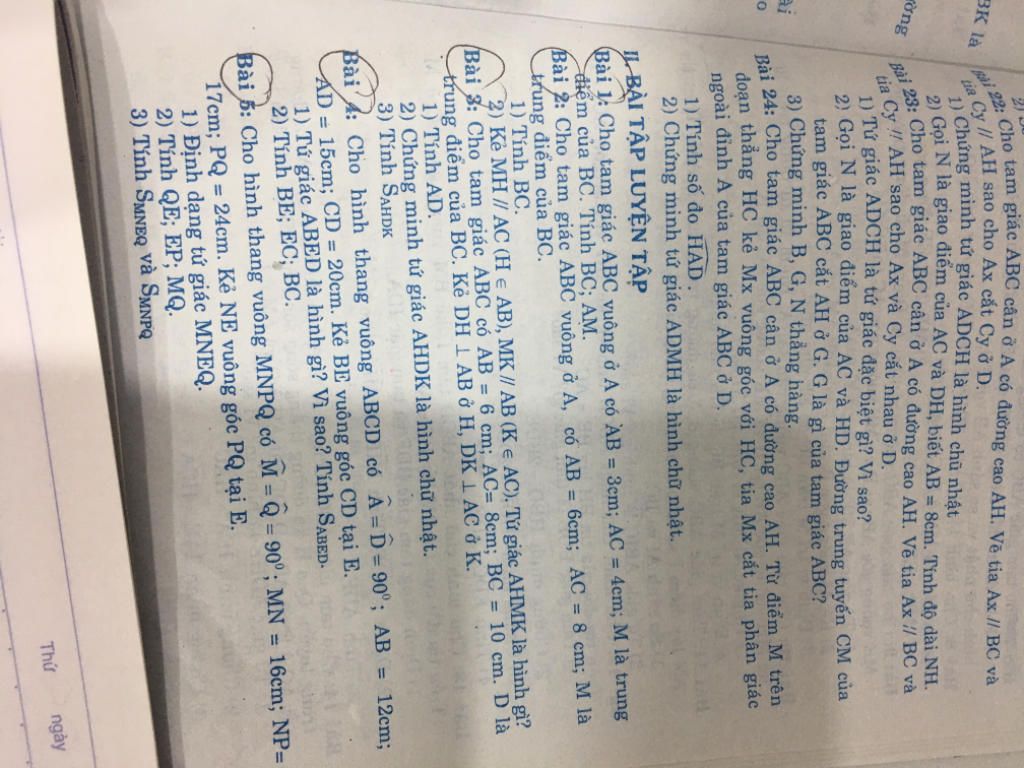 BK là
ường
ài
o
Bài 22: Cho tam giác ABC cân ở A có đường cao AH. Vẽ tia Ax // BC và
tia Cy // AH sao cho Ax cắt Cy ở D.
1) Chứng minh tứ giác ADCH là hình chũ nhật
2) Gọi N là giao điểm của AC và DH, biết AB = 8cm. Tính độ dài NH.
Bài 23: Cho tam giác ABC cân ở A có đường cao AH. Vẽ tia Ax // BC và
tia Cy // AH sao cho Ax và Cy cắt nhau ở D.
1) Tứ giác ADCH là tứ giác đặc biệt gì? Vì sao?
2) Gọi N là giao điểm của AC và HD. Đường trung tuyến CM của
tam giác ABC cắt AH ở G. G là gì của tam giác ABC?
3) Chứng minh B, G, N thẳng hàng.
Bài 24: Cho tam giác ABC cân ở A có đường cao AH. Từ điểm M trên
đoạn thẳng HC kẻ Mx vuông góc với HC, tia Mx cắt tia phân giác
ngoài đỉnh A của tam giác ABC ở D.
1) Tính số đo HAD.
2) Chứng minh tứ giác ADMH là hình chữ nhật.
II. BÀI TẬP LUYỆN TẬP
Bài 1: Cho tam giác ABC vuông ở A có AB = 3cm; AC = 4cm; M là trung
điểm của BC. Tính BC; AM.
Bài 2: Cho tam giác ABC vuông ở A, có AB = 6cm; AC = 8 cm; M là
trung điểm của BC.
1) Tính BC.
2) Kẻ MH // AC (H ∈ AB), MK // AB (K ∈ AC). Tứ giác AHMK là hình gì?
Bài 3: Cho tam giác ABC có AB = 6 cm; AC= 8cm; BC = 10 cm. D là
trung điểm của BC. Kẻ DH ⊥ AB ở H, DK ⊥ AC ở K.
1) Tính AD.
2) Chứng minh tứ giác AHDK là hình chữ nhật.
3) Tính SAHDK
Bài 4: Cho hình thang vuông ABCD có Â = D̂ = 90⁰; AB = 12cm;
AD = 15cm; CD = 20cm. Kẻ BE vuông góc CD tại E.
1) Tứ giác ABED là hình gì? Vì sao? Tính SABED.
2) Tính BE; EC; BC.
Bài 5: Cho hình thang vuông MNPQ có M̂ = Q̂ = 90⁰; MN = 16cm; NP=
17cm; PQ = 24cm. Kẻ NE vuông góc PQ tại E.
1) Định dạng tứ giác MNEQ.
2) Tính QE; EP; MQ.
3) Tính SMNEQ và SMNPQ
Thứ ngày